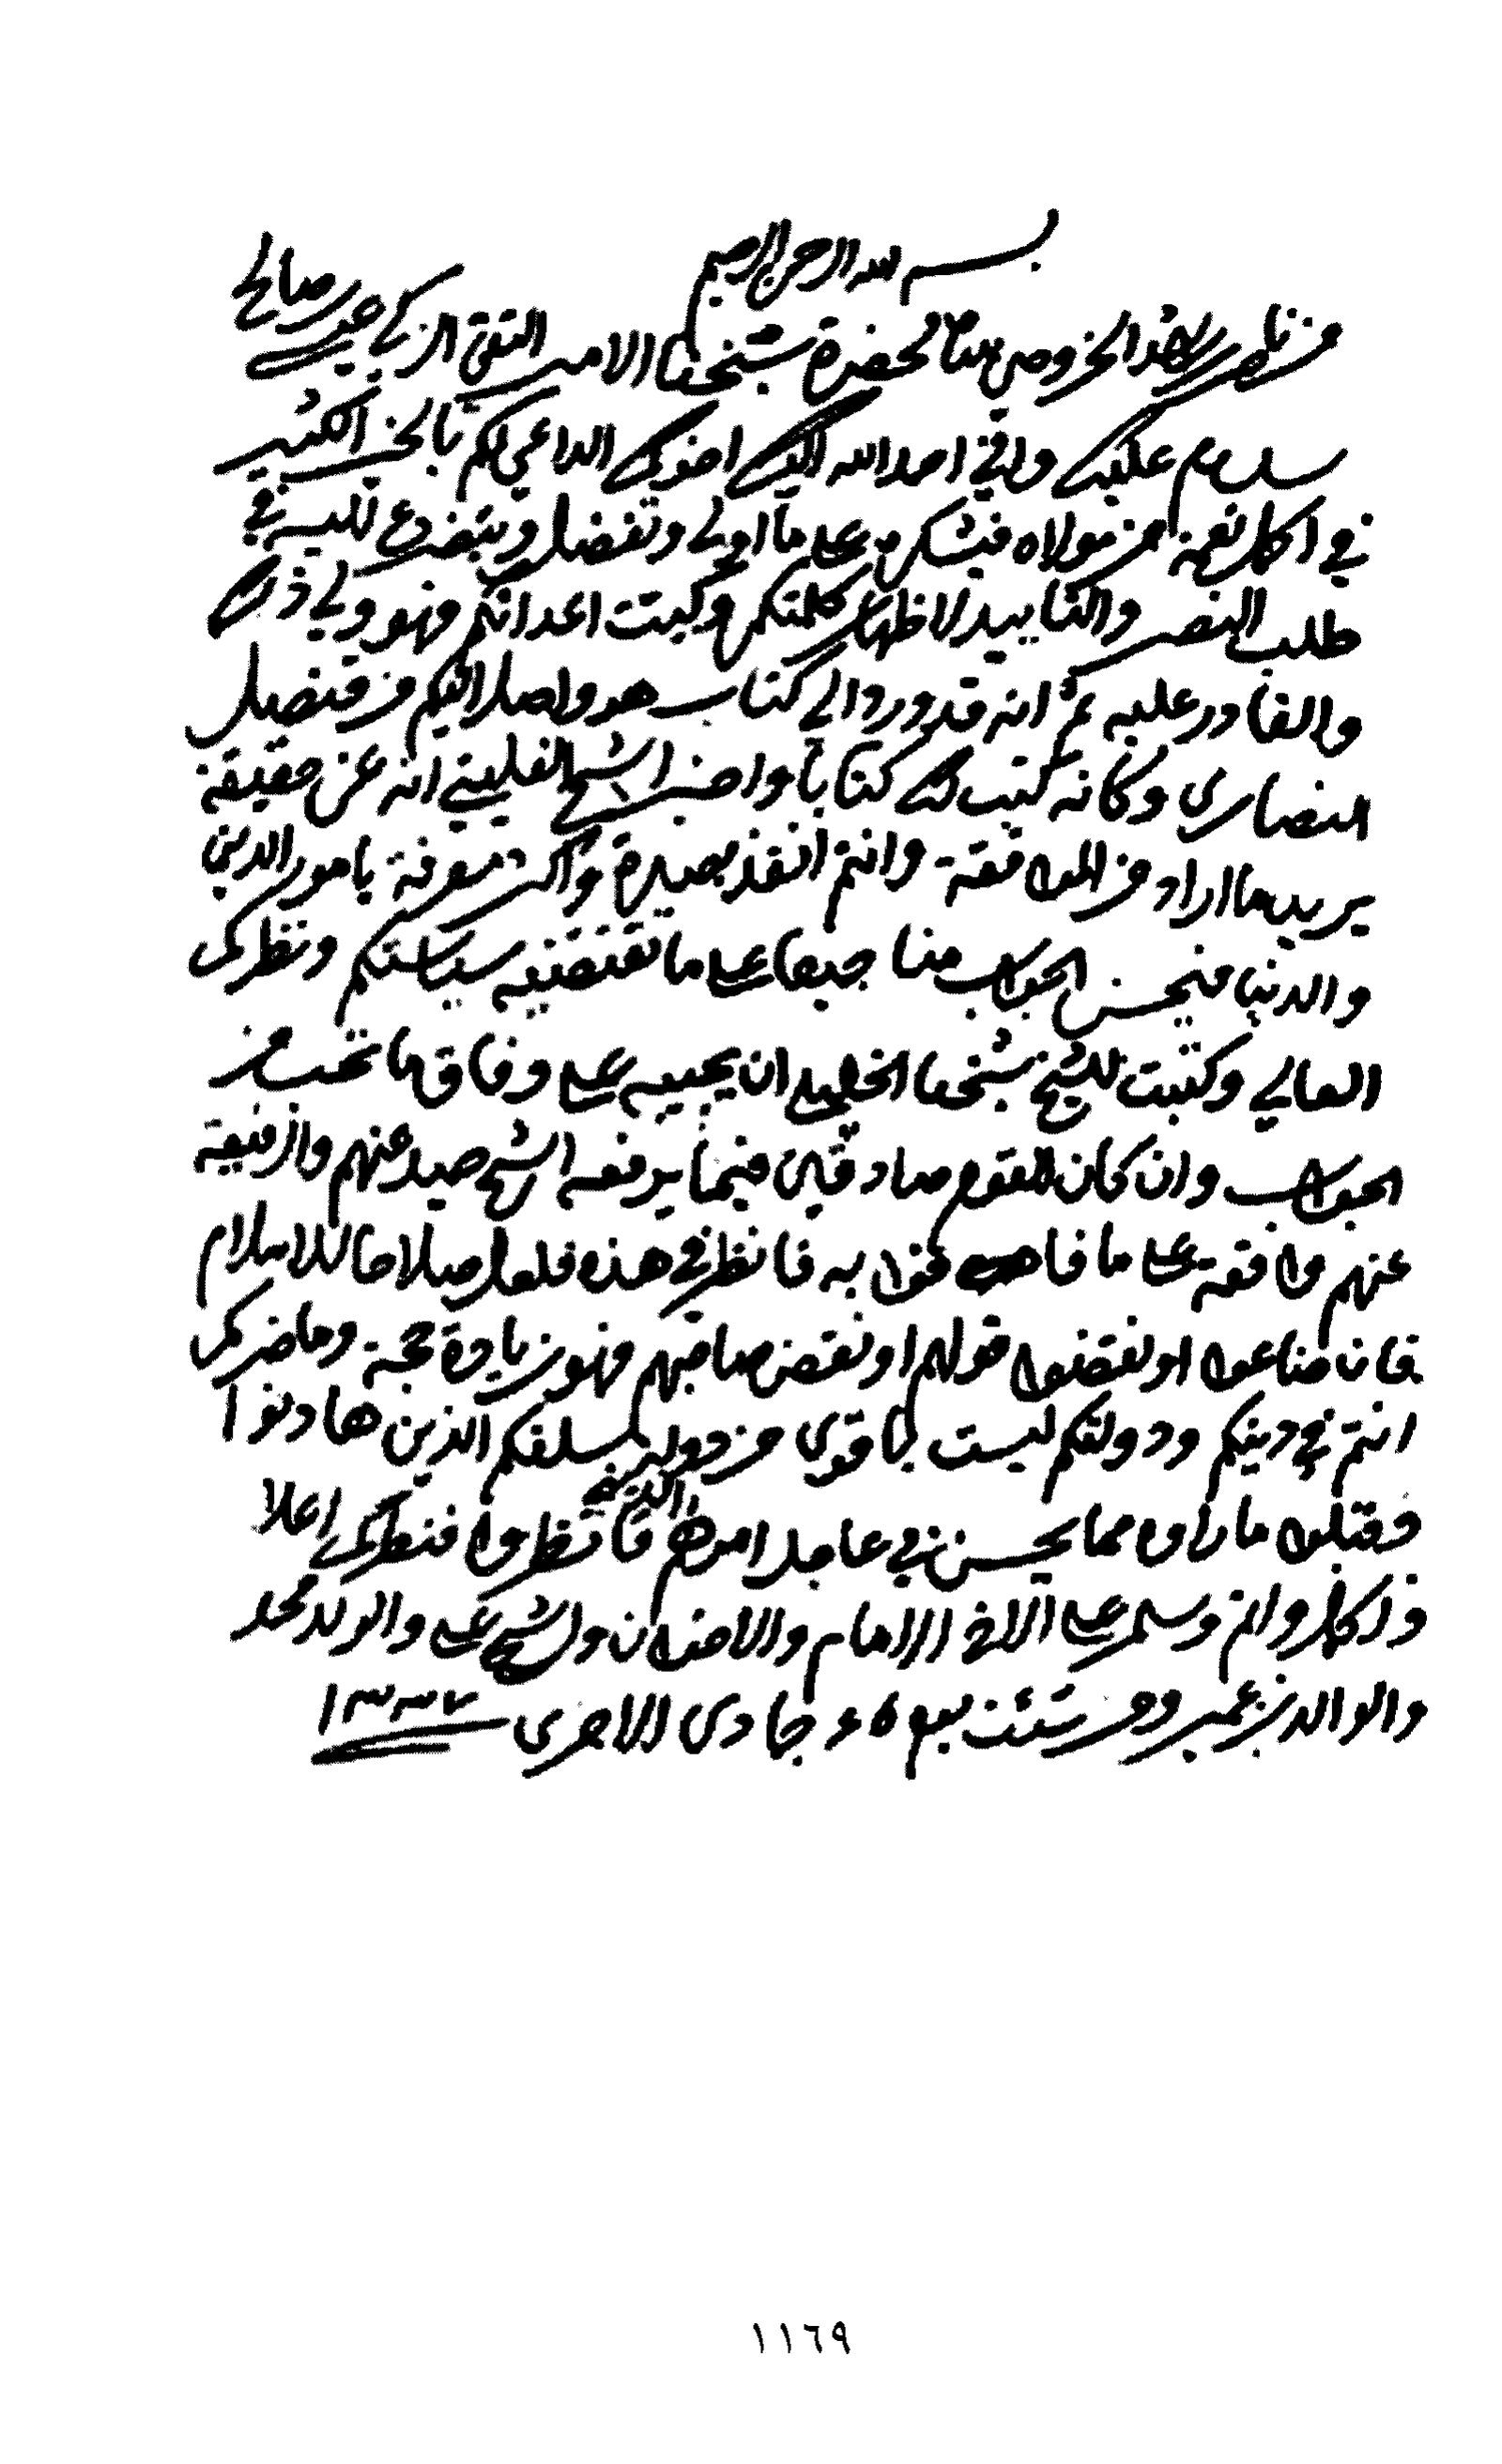 بسم الله الرحمن الرحيم
من ناصر بن راشد الخروصي الى حضرة شيخنا الامير التقي الزكي عيسى بن صالح
سلام عليك واني احمد الله اليك اخوك الداعي لكم بالخير الكثير
في اكمل نعمة من مولاه فيشكره على ما اولى وتفضل ويتضرع اليه في
طلب النصر والتاييد لاظهار كلمتكم وكبت اعدائكم فهو ولي ذلك
والقادر عليه ثم انه قد ورد الي كتاب هو واصل اليكم من قنصل
النصارى وكانه كتب لك كتابا واخبر الشيخ الغليني انه عن حقيقة
يريد ما اراد من الموافقة وانتم انفذ بصيرة واكثر معرفة بامور الدين
والدنيا فيحسن الجواب منا جميعا على ما تقتضيه سياستكم ونظركم
العالي وكتبت للشيخ شيخنا الخليلي ان يجيبه على وفاق ما تحب من
الجواب وان كان القوم صادقين فيما يرفعه الشيخ صيد عنهم وان فيه
عنهم موافقة على ما فاهوا به فانظر في هذه فلعل صلاحا للاسلام
فان ضاعوا او نقضوا قولهم او نقض صاحبهم فهو زيادة حجة وما ضركم
انتم في دينكم ودولتكم ليست باقوى من دولة سلفكم الذين هادنوا
وقبلوا ما راوه مما يحسن في عاجل امرهم الديني فانظروا فنظركم اعلا
واكمل وانتم وسلم على الاخ الامام والاخوان والشيخ علي والولد محمد
والوالد بن عمير ومن شئت يوم ٥ جمادى الاخرى ١٣٣٧
١١٦٩